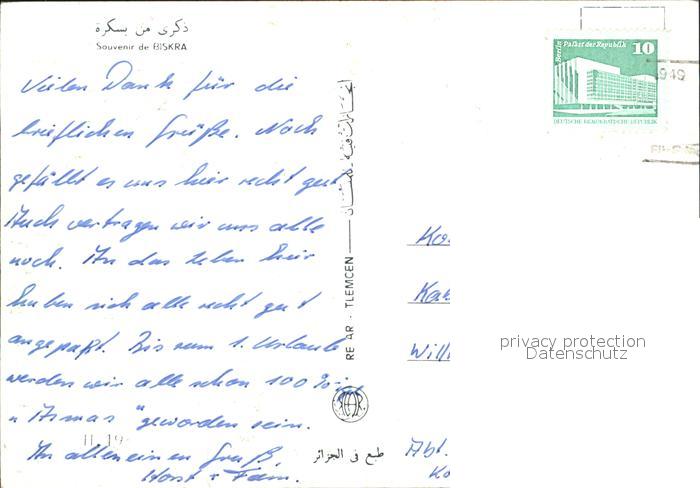 ذكرى من بسكرة
Souvenir de BISKRA
Vielen Dank für die
brieflichen Grüße. Noch
gefällt es uns hier recht gut
Auch vertragen wir uns alle
noch. An das Leben hier
haben sich alle recht gut
angepaßt. Bis zum 1. Urlaub
werden wir alle schon 100 %
"geworden sein.
Ihn allen einen Gruß,
Horst + Fam.
RE AR - TLEMCEN
طبع فى الجزائر
Berlin Palast der Republik 10
DEUTSCHE DEMOKRATISCHE REPUBLIK
1949
11 19
Will
Abt.
privacy protection
Datenschutz